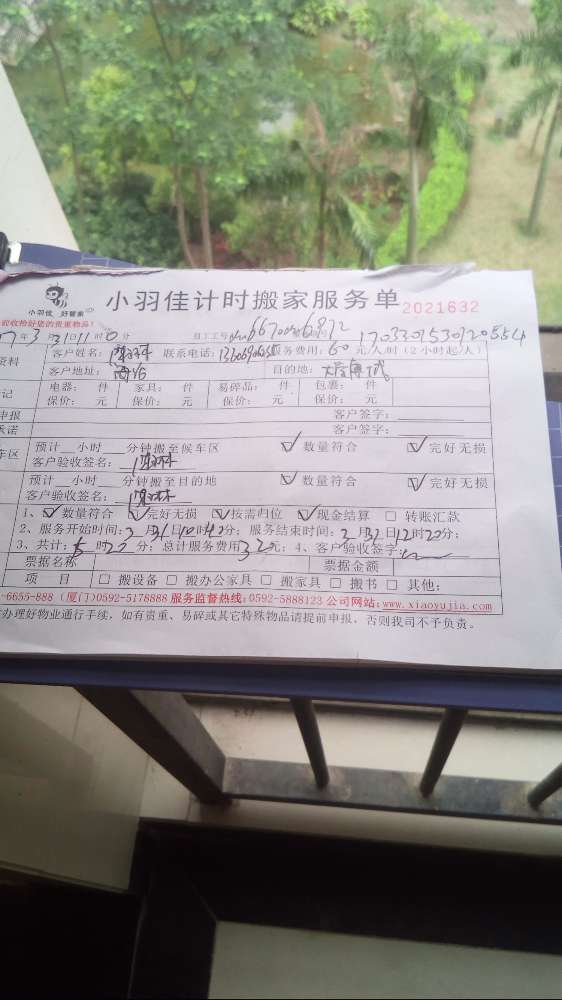 小羽佳计时搬家服务单 2021632
小羽佳 好管家
前收拾好您的贵重物品!
7年3月31日11时0分 员工工号 1703301530120554
资料 客户姓名: 联系电话: 服务费用: 60元/人/时(2小时起/人)
客户地址: 目的地:
记 电器: 件 家具: 件 易碎品: 件 包裹: 件
保价: 元 保价: 元 保价: 元 保价: 元
申报 客户签字:
承诺 客户签字:
车区 预计 小时 分钟搬至候车区 数量符合 完好无损
客户验收签名:
预计 小时 分钟搬至目的地 数量符合 完好无损
客户验收签名:
1、数量符合 完好无损 按需归位 现金结算 转账汇款
2、服务开始时间: 3月31日10时40分; 服务结束时间: 3月31日12时20分;
3、共计: 时20分; 总计服务费用 元; 4、客户验收签字:
票据名称 票据金额
项 目 搬设备 搬办公家具 搬家具 搬书 其他:
-6655-888 (厦门)0592-5178888 服务监督热线:0592-5888123 公司网站:www.xiaoyujia.com
办理好物业通行手续，如有贵重、易碎或其它特殊物品请提前申报，否则我司不予负责。